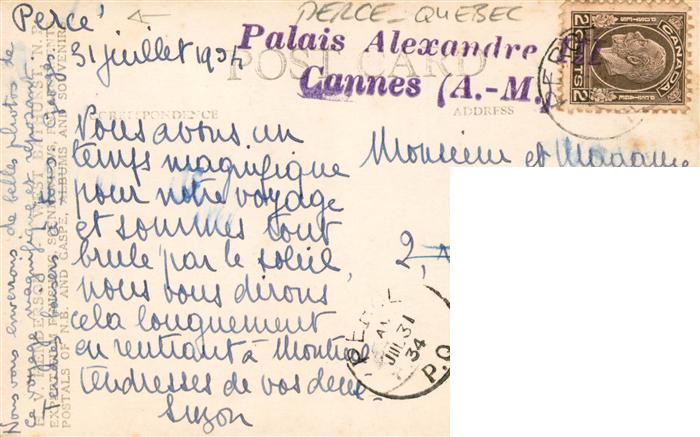 Percé
31 juillet 1934
PERCE - QUEBEC
Palais Alexandre III
Cannes (A.-M.
POST CARD
CORRESPONDENCE
ADDRESS
CANADA
2 CENTS 2
Nous avons un
temps magnifique
pour notre voyage
et sommes tout
brulé par le soleil,
nous vous dirons
cela longuement
en rentrant à Montréal
tendresses de vos deux
Suzon
Monsieur et Madame
2,
PERCE
AM
JUL 31
34
P.Q.
Nous vous enverrons de belles photos de
ce voyage magnifique et épatant
Tendres baisers à tous Georges
WEST BATHURST, N.B.
POSTALS OF N.B. AND GASPE, ALBUMS AND SOUVENIRS